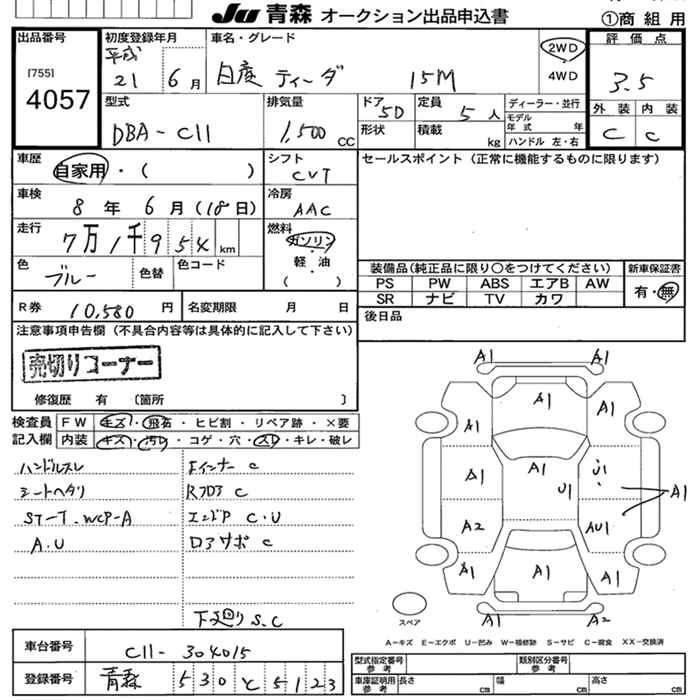 JU 青森 オークション出品申込書
①商組用
出品番号
[755]
4057
初度登録年月
平成 21 6月
車名・グレード
日産 ティーダ 15M
2WD
4WD
評価点
3.5
外装 内装
C C
型式
DBA-C11
排気量
1,500 CC
ドア 5D
形状
定員 5人
積載 kg
ディーラー・並行
モデル年式 年
ハンドル 左・右
車歴
自家用・( )
シフト
CVT
セールスポイント(正常に機能するものに限ります)
車検
8年 6月(18日)
冷房
AAC
走行
7万1千954km
燃料
ガソリン
軽・油
( )
色
ブルー
色替
色コード
装備品(純正品に限り○をつけてください)
新車保証書
PS PW ABS エアB AW
SR ナビ TV カワ
有・無
R券 10,580円
名変期限 月 日
後日品
注意事項申告欄(不具合内容等は具体的に記入して下さい)
売切りコーナー
修復歴 有 〔箇所 〕
検査員記入欄
FW キズ・飛石・ヒビ割・リペア跡・×要
内装 キズ・汚レ・コゲ・穴・スレ・キレ・破レ
ハンドルスレ
シートヘタリ
ST-T.WCP-A
A.U
Fインナー C
Rフロア C
エンドP C.U
ロアサポ C
下廻り S.C
A1 A1
A1
A1 A1
A1 A1 U1
U1 A1
A2 AU1
A1 A1 A1
A1 A2
スペア
A-キズ E-エクボ U-凹み W-補修跡 S-サビ C-腐食 XX-交換済
車台番号 C11-304015
登録番号 青森 530 と 5123
型式指定番号 参考
類別区分番号 参考
車庫証明用 参考 長さ cm 幅 cm 高さ cm